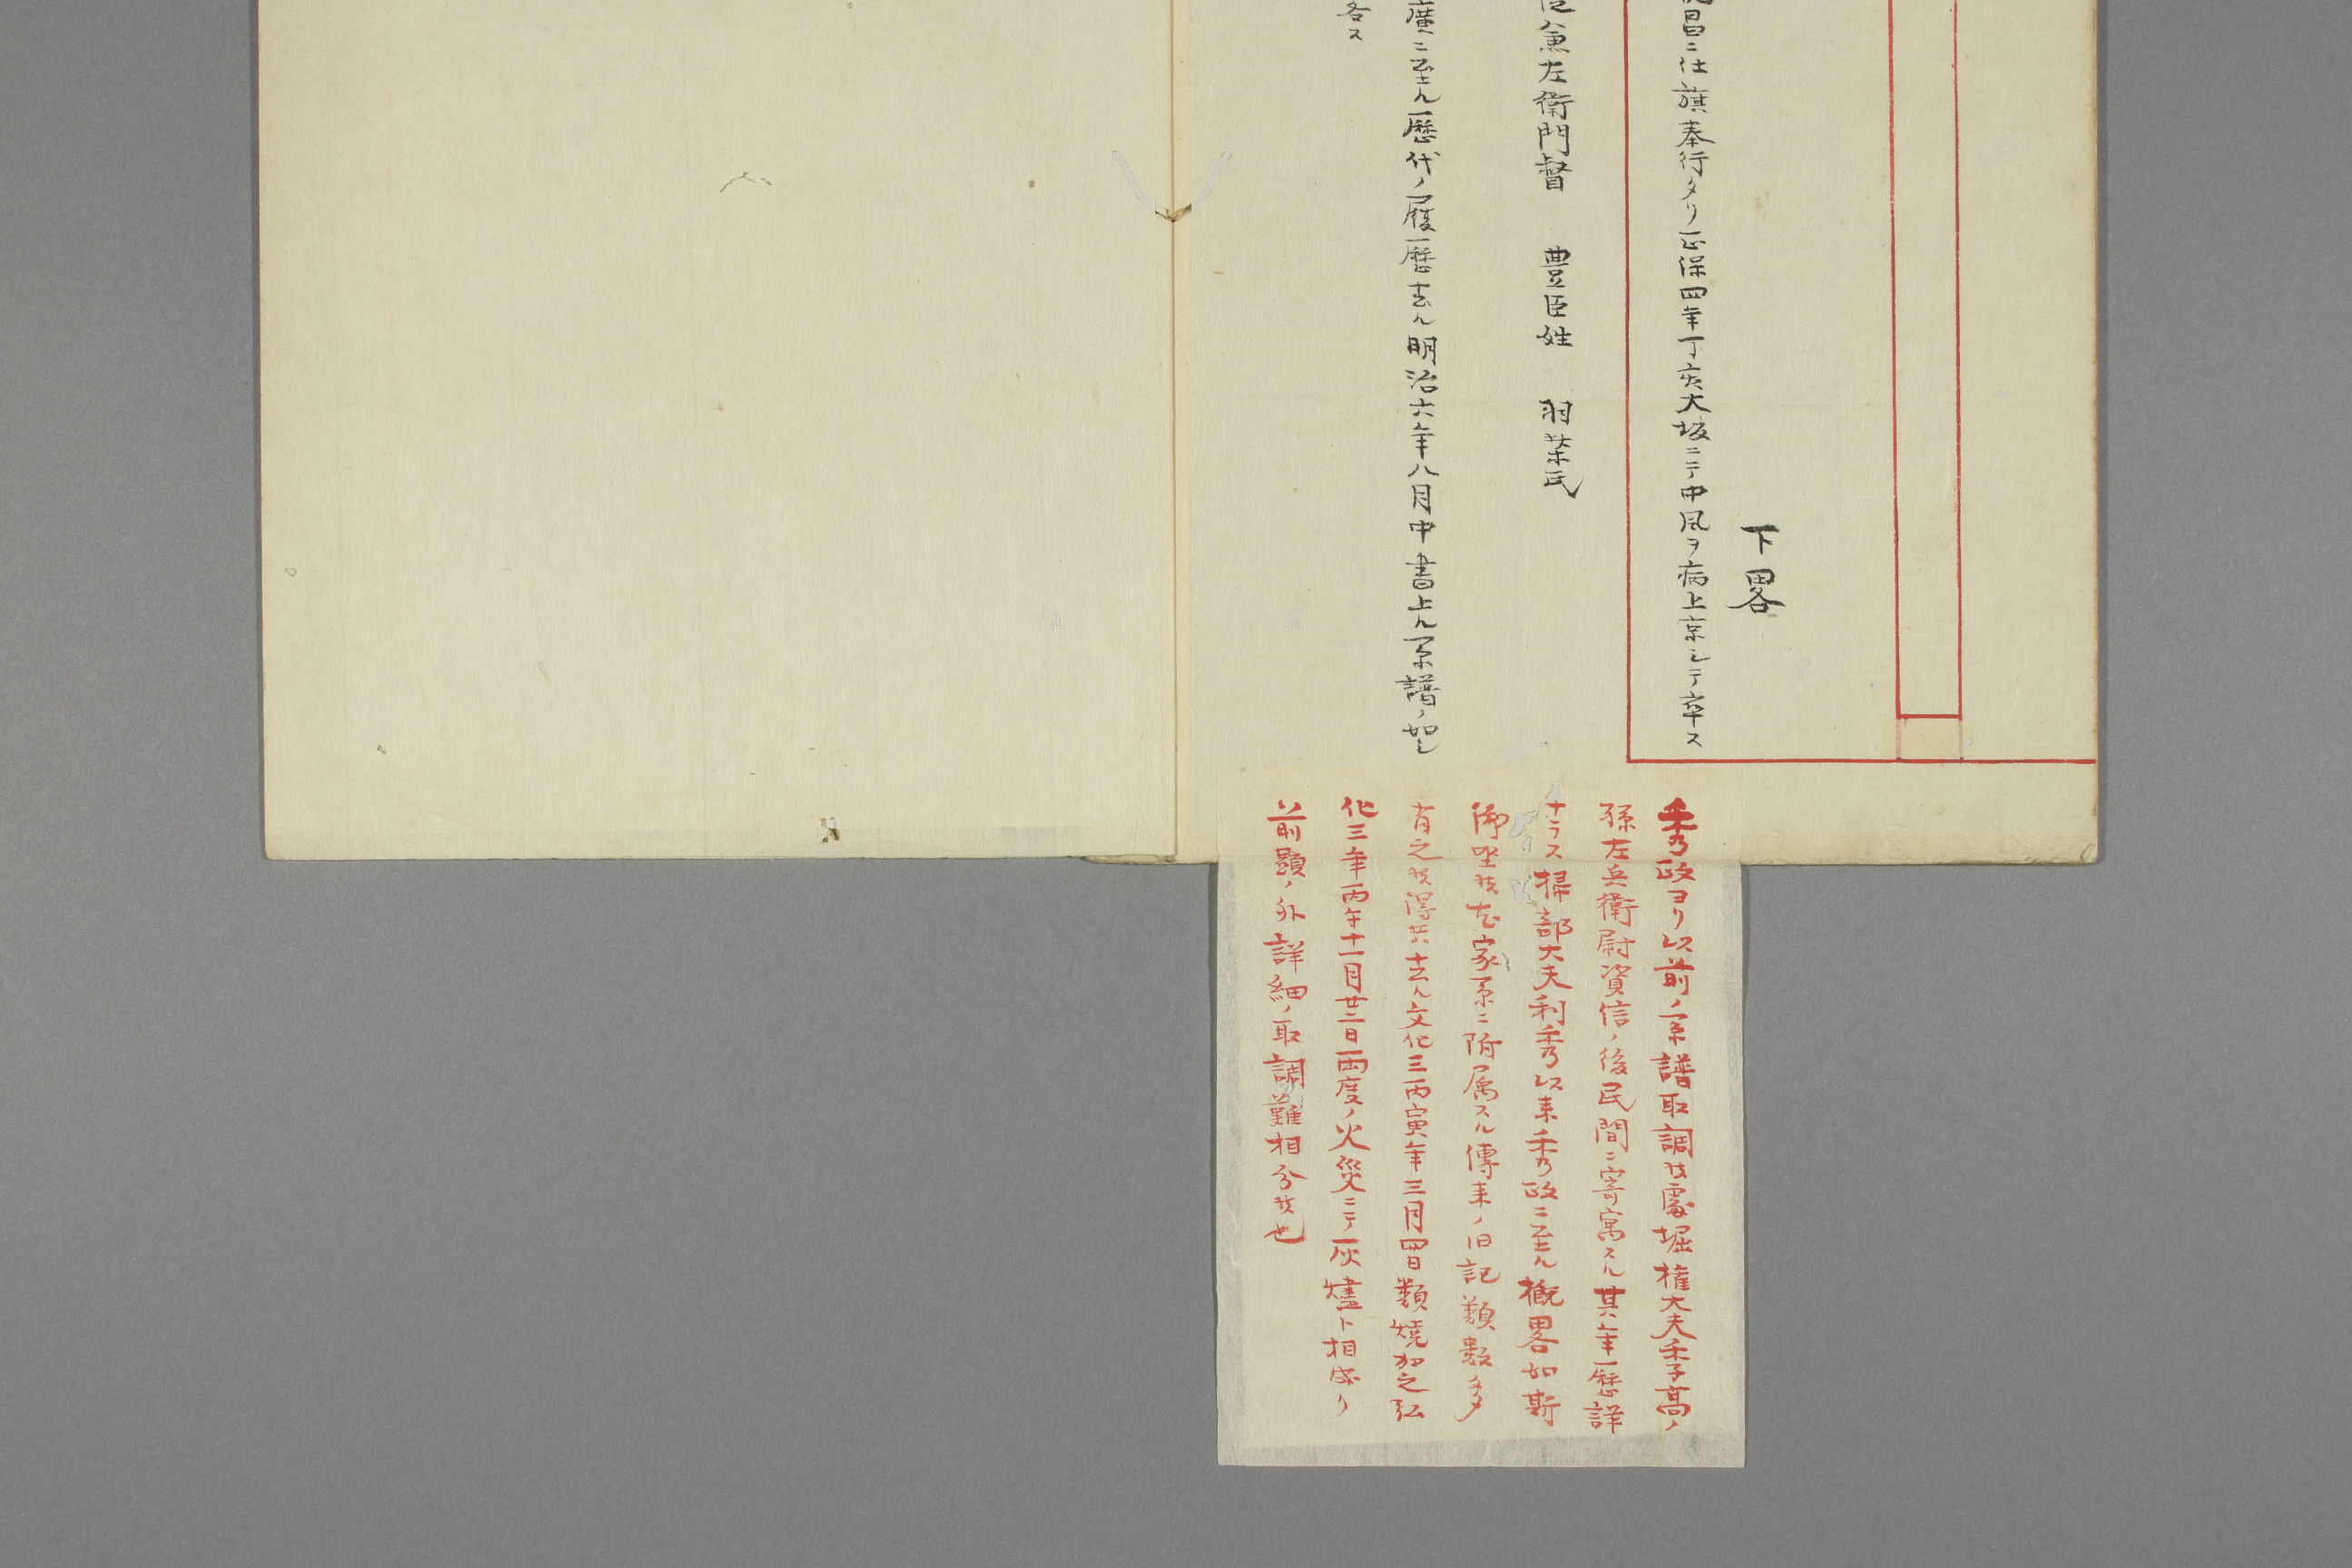 下畧
昌ニ仕旗奉行タリ正保四年丁亥大坂ニテ中風ヲ病上京シテ卒ス
兼左衛門督 豊臣姓 羽柴氏
廣ニ至ル歴代ノ履歴去ル明治六年八月中書上ル系譜ノ如し
畧ス
秀政ヨリ以前ノ系譜取調候處堀権大夫季高ノ
孫左兵衛尉資信ノ後民間ニ寄寓スル其年歴詳
ナラス掃部大夫利秀以来秀政ニ至ル概畧如斯
御坐候尤家系ニ附属スル傳来ノ旧記類数多
有之候得共去ル文化三丙寅年三月四日類焼加之弘
化三年丙午十一月廿二日両度ノ火災ニテ灰燼ト相成リ
前顕ノ外詳細ノ取調難相分候也